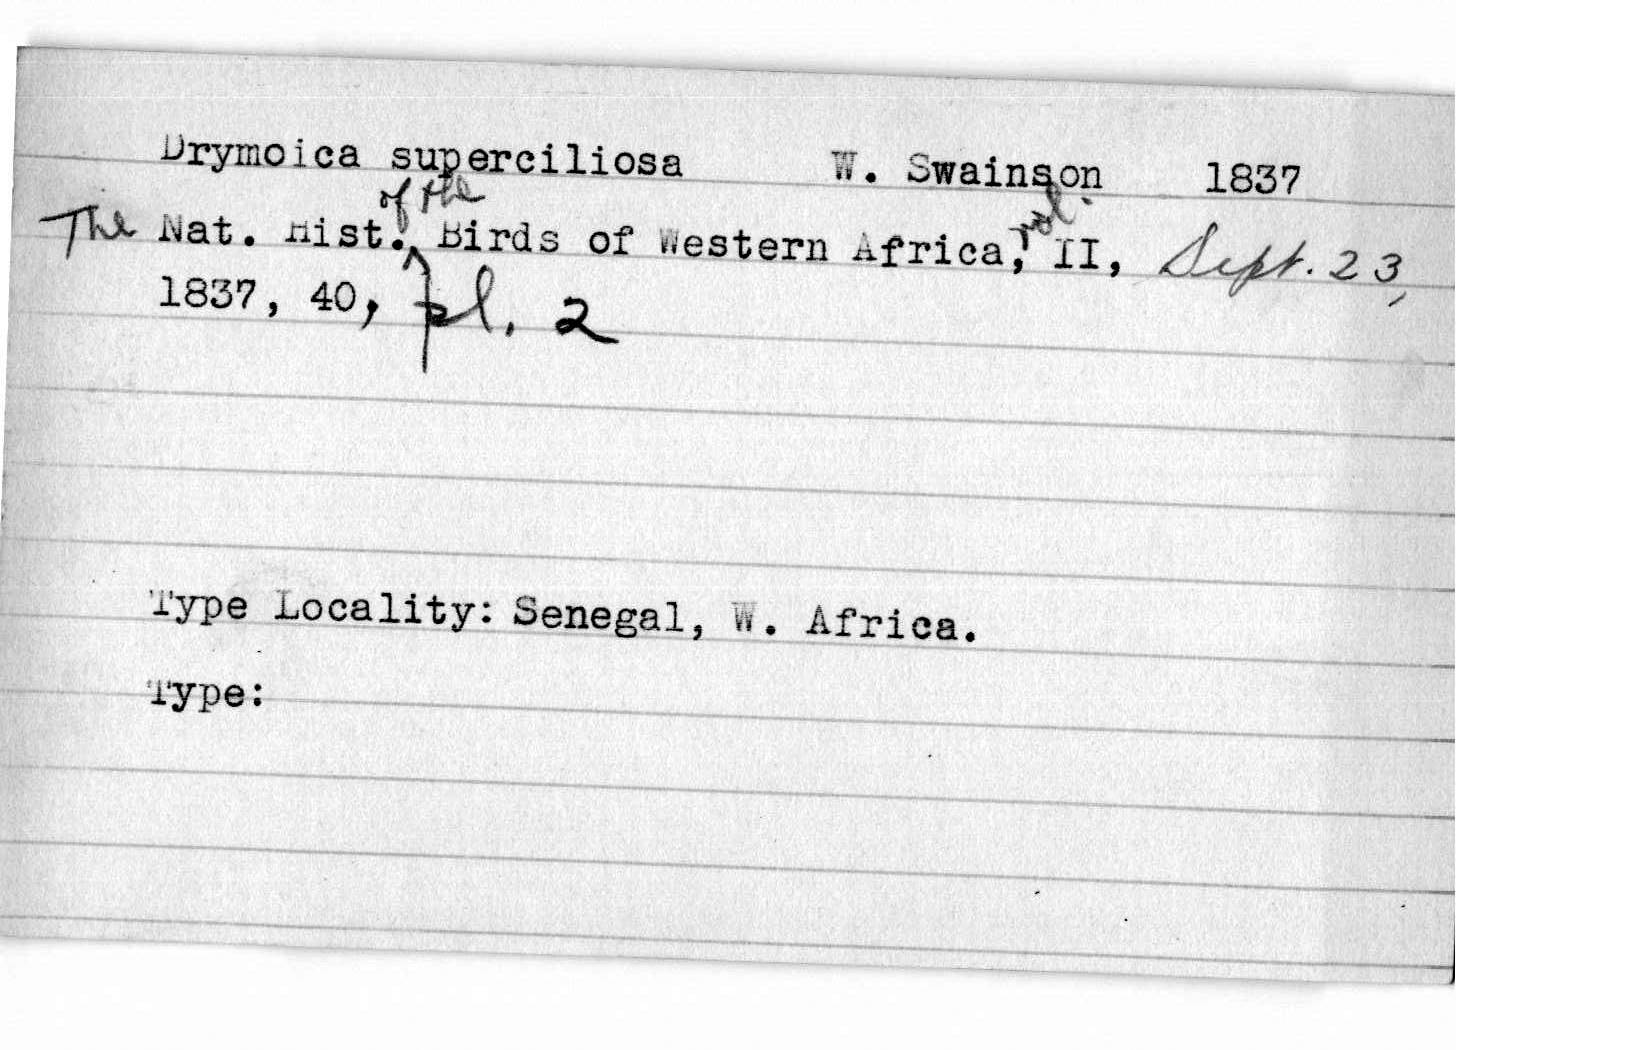 Drymoica superciliosa W. Swainson 1837
The Nat. Hist. of the Birds of Western Africa, vol. II, Sept. 23,
1837, 40, pl. 2
Type Locality: Senegal, W. Africa.
Type: